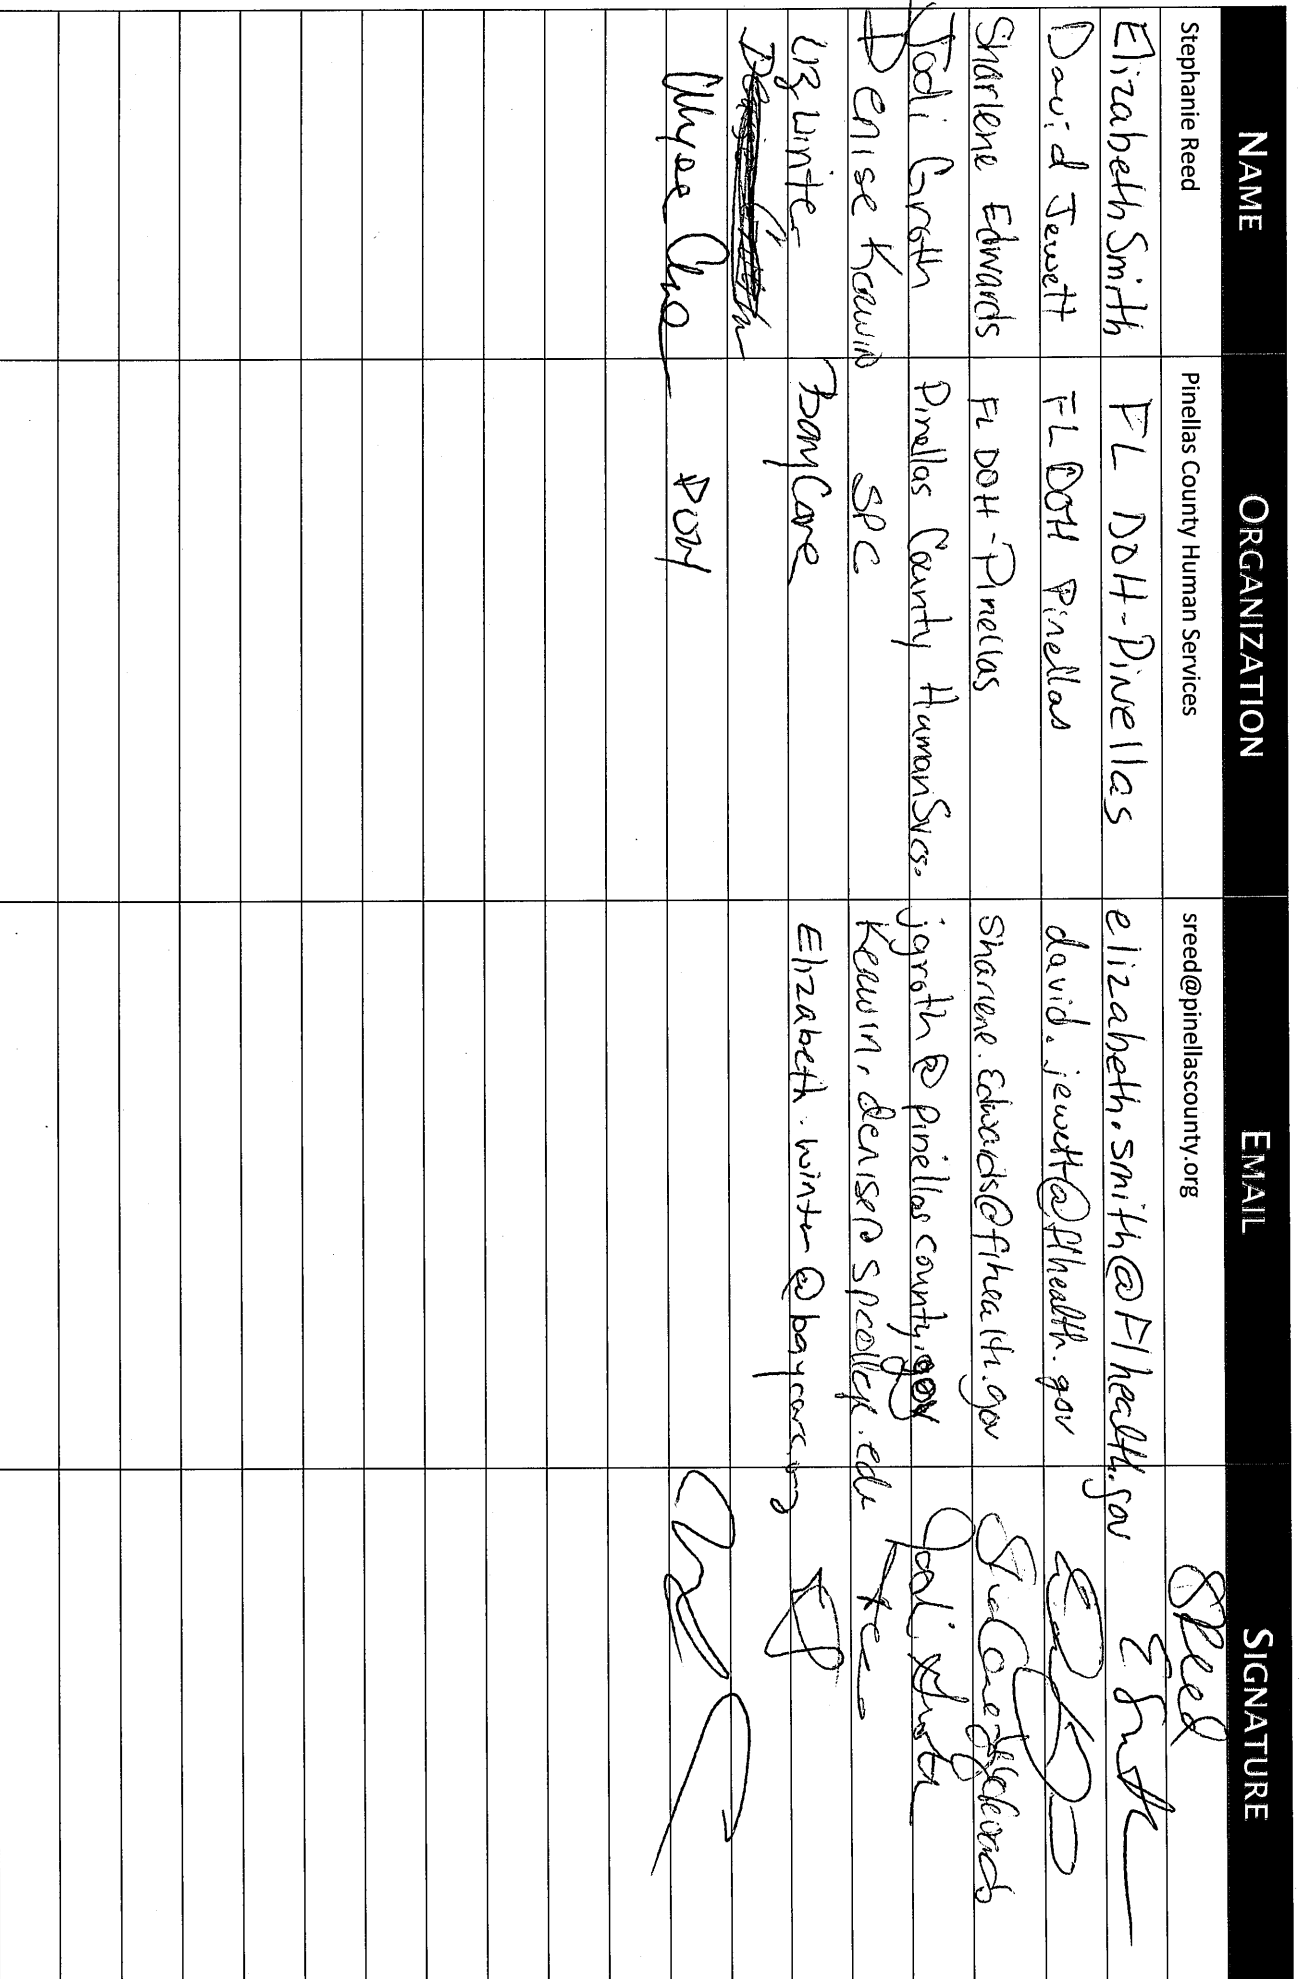 NAME ORGANIZATION EMAIL SIGNATURE
Stephanie Reed Pinellas County Human Services sreed@pinellascounty.org SReed
Elizabeth Smith FL DOH-Pinellas elizabeth.smith@Flhealth.gov ESmith
David Jewett FL DOH Pinellas david.jewett@flhealth.gov
Sharlene Edwards FL DOH-Pinellas Sharlene.Edwards@flhealth.gov Sharlene Edwards
Jodi Groth Pinellas County Human Svcs. jgroth@pinellascounty.gov Jodi Groth
Denise Kerwin SPC Kerwin.denise@spcollege.edu
Liz Winter BayCare Elizabeth.winter@baycare.org
DOH